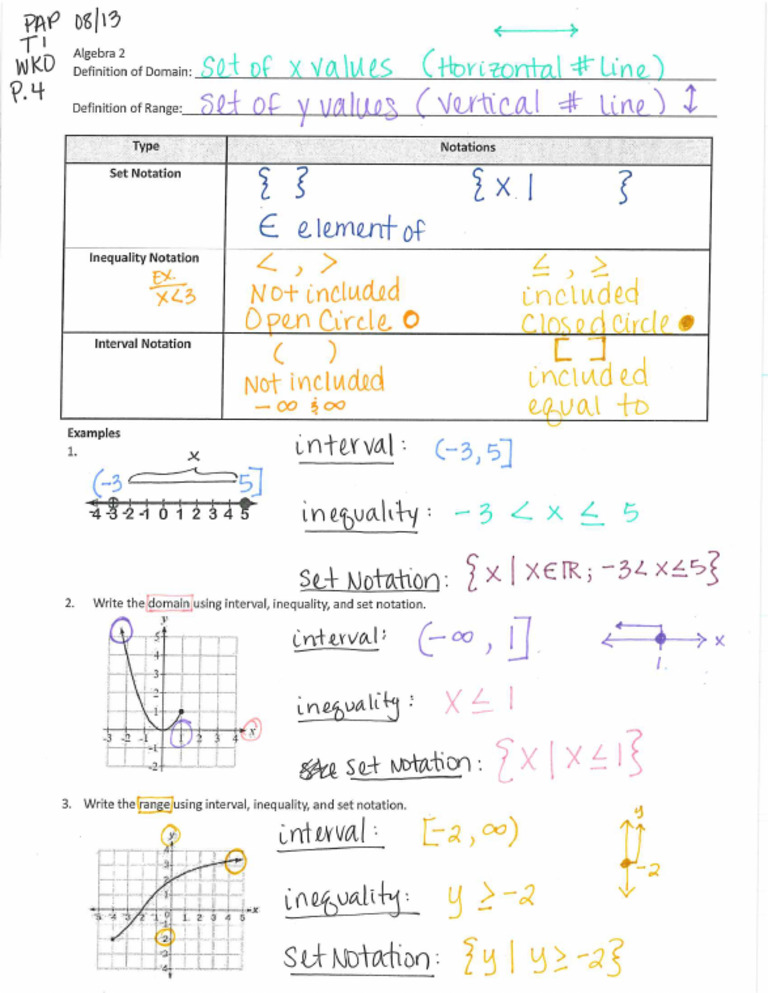 PAP 08/13
T1
WKD
P.4
Algebra 2
Definition of Domain: Set of x values (Horizontal # Line)
Definition of Range: Set of y values (vertical # line) ↕
Type Notations
Set Notation { } {x | }
∈ element of
Inequality Notation < , > ≤ , ≥
Ex. x<3 Not included included
Open Circle closed circle
Interval Notation ( ) [ ]
Not included included
-∞ & ∞ equal to
Examples
1. x interval: (-3, 5]
(-3 5]
-4 -3 -2 -1 0 1 2 3 4 5 inequality: -3 < x ≤ 5
Set Notation: {x | x∈ℝ; -3<x≤5}
2. Write the domain using interval, inequality, and set notation.
y
5 interval: (-∞, 1] x
4 1
3
2 inequality: x ≤ 1
1
-3 -2 -1 1 2 3 4 x
-1
-2 Set Notation: {x | x ≤ 1}
3. Write the range using interval, inequality, and set notation.
y interval: [-2, ∞) y
-2
inequality: y ≥ -2
-5 -4 -3 -2 -1 0 1 2 3 4 5 x
Set Notation: {y | y ≥ -2}